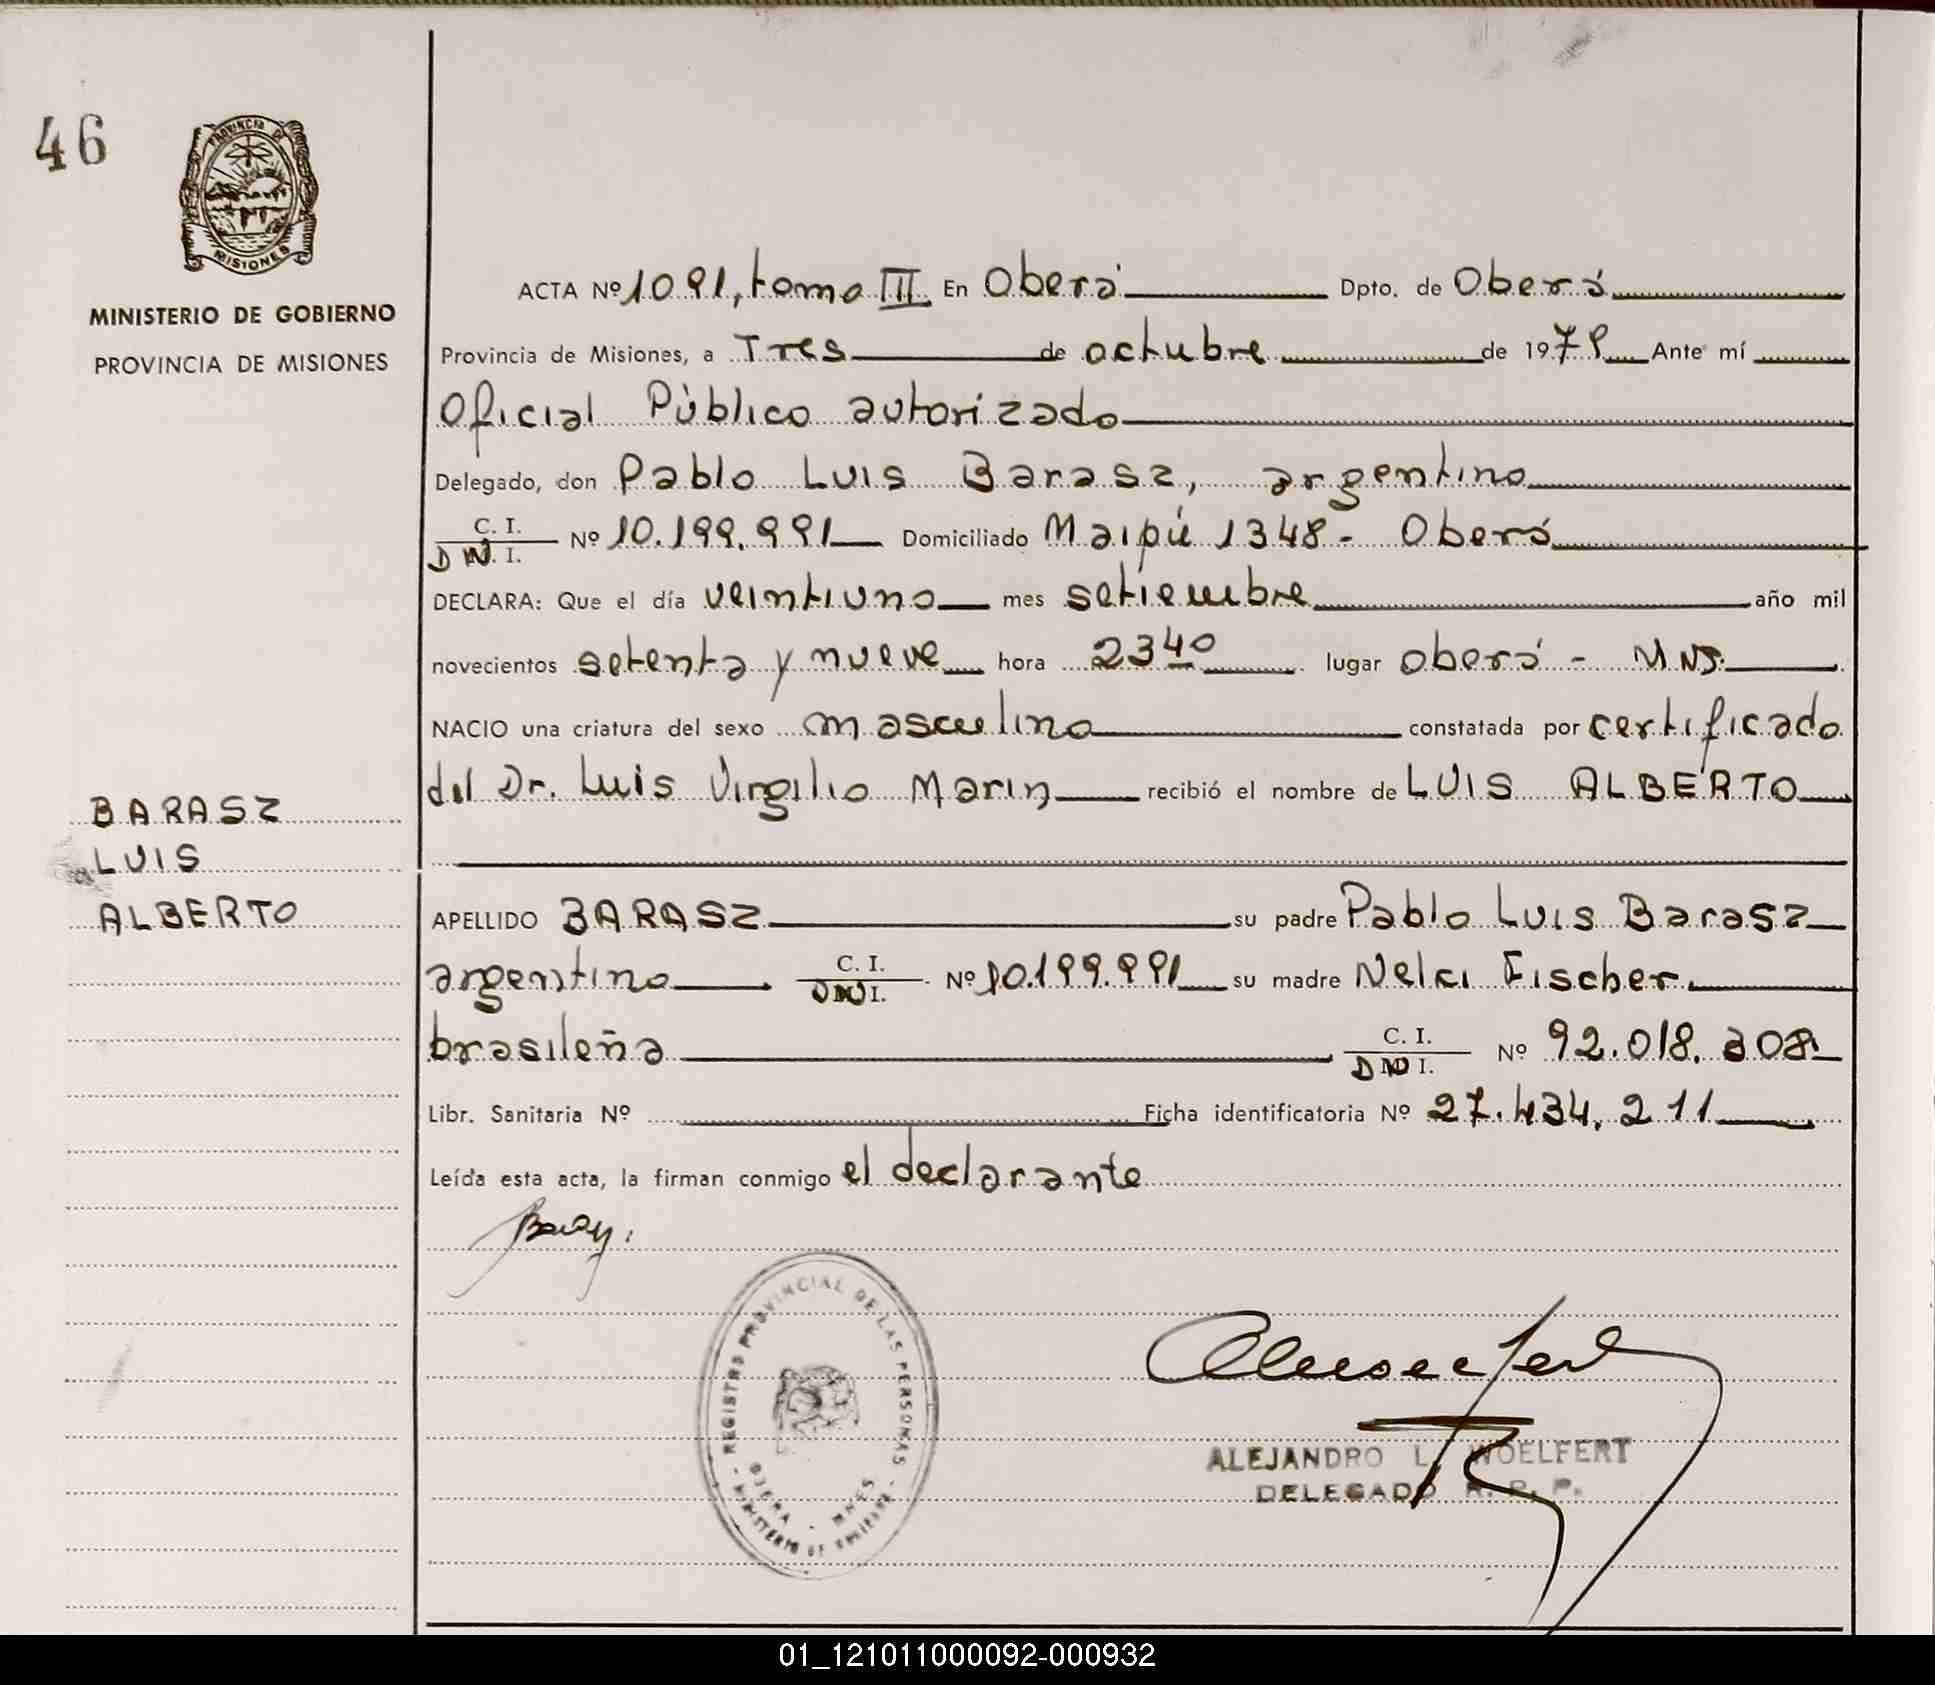 46
PROVINCIA DE
MISIONES
MINISTERIO DE GOBIERNO
PROVINCIA DE MISIONES
BARASZ
LUIS
ALBERTO
ACTA Nº 1091, tomo III En Oberá Dpto. de Oberá
Provincia de Misiones, a Tres de octubre de 1979 Ante mí
Oficial Público autorizado
Delegado, don Pablo Luis Barasz, argentino
C. I.
DN.I. Nº 10.199.991 Domiciliado Maipú 1348 - Oberá
DECLARA: Que el día veintiuno mes setiembre año mil
novecientos setenta y nueve hora 23 40 lugar oberá - MNS.
NACIO una criatura del sexo masculino constatada por certificado
del Dr. Luis Virgilio Marin recibió el nombre de LUIS ALBERTO
APELLIDO BARASZ su padre Pablo Luis Barasz
argentino C. I. DNI. Nº 10.199.991 su madre Nelci Fischer
brasileña C. I. DNI. Nº 92.018.308
Libr. Sanitaria Nº Ficha identificatoria Nº 27.434.211
Leída esta acta, la firman conmigo el declarante
REGISTRO PROVINCIAL DE LAS PERSONAS
OBERA - MNES
MINISTERIO DE GOBIERNO
ALEJANDRO L. WOELFERT
DELEGADO R. P. P.
01_121011000092-000932